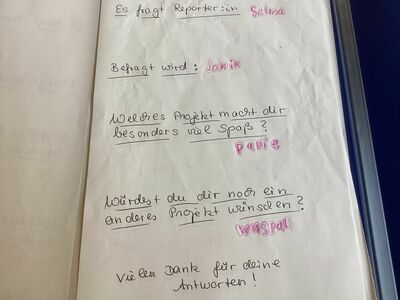 Es fragt Reporter:in Selma
Befragt wird: Janik
Welches Projekt macht dir
besonders viel Spaß?
Würdest du dir noch ein
anderes Projekt wünschen?
Vielen Dank für deine
Antworten!